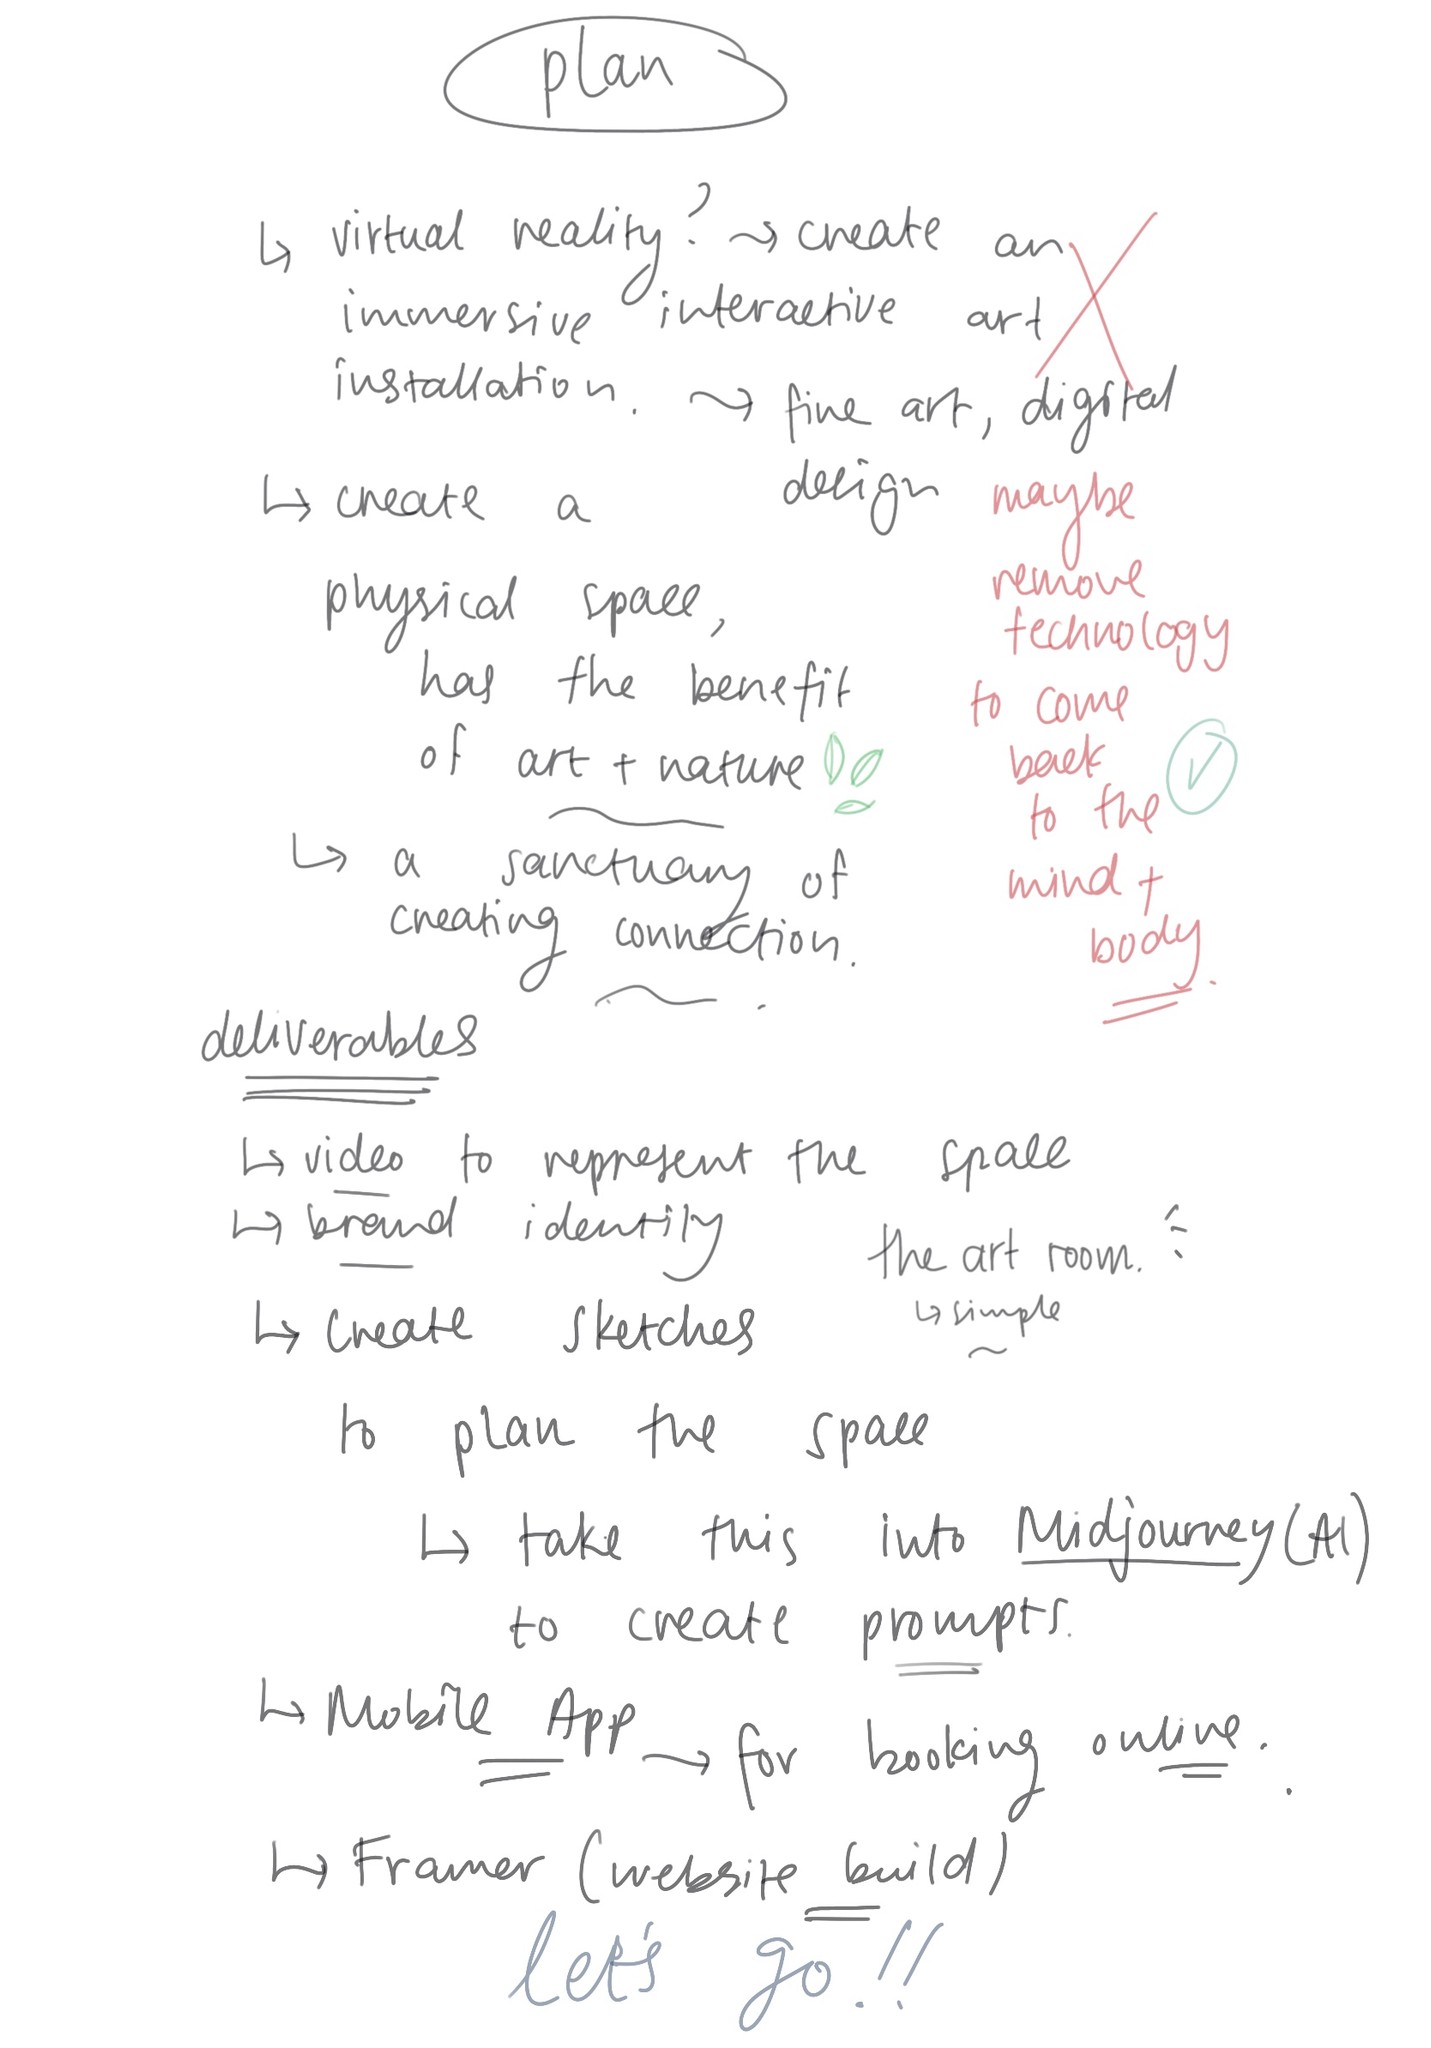 plan
↳ virtual reality? ⤳ create an
immersive interactive art
installation. ⤳ fine art, digital
design
↳ create a
physical space,
has the benefit
of art + nature
↳ a sanctuary of
creating connection.
maybe
remove
technology
to come
back
to the
mind +
body.
deliverables
↳ video to represent the space
↳ brand identity
the art room.
↳ simple
↳ create sketches
to plan the space
↳ take this into Midjourney (AI)
to create prompts.
↳ Mobile App → for booking online.
↳ Framer (website build)
let's go!!